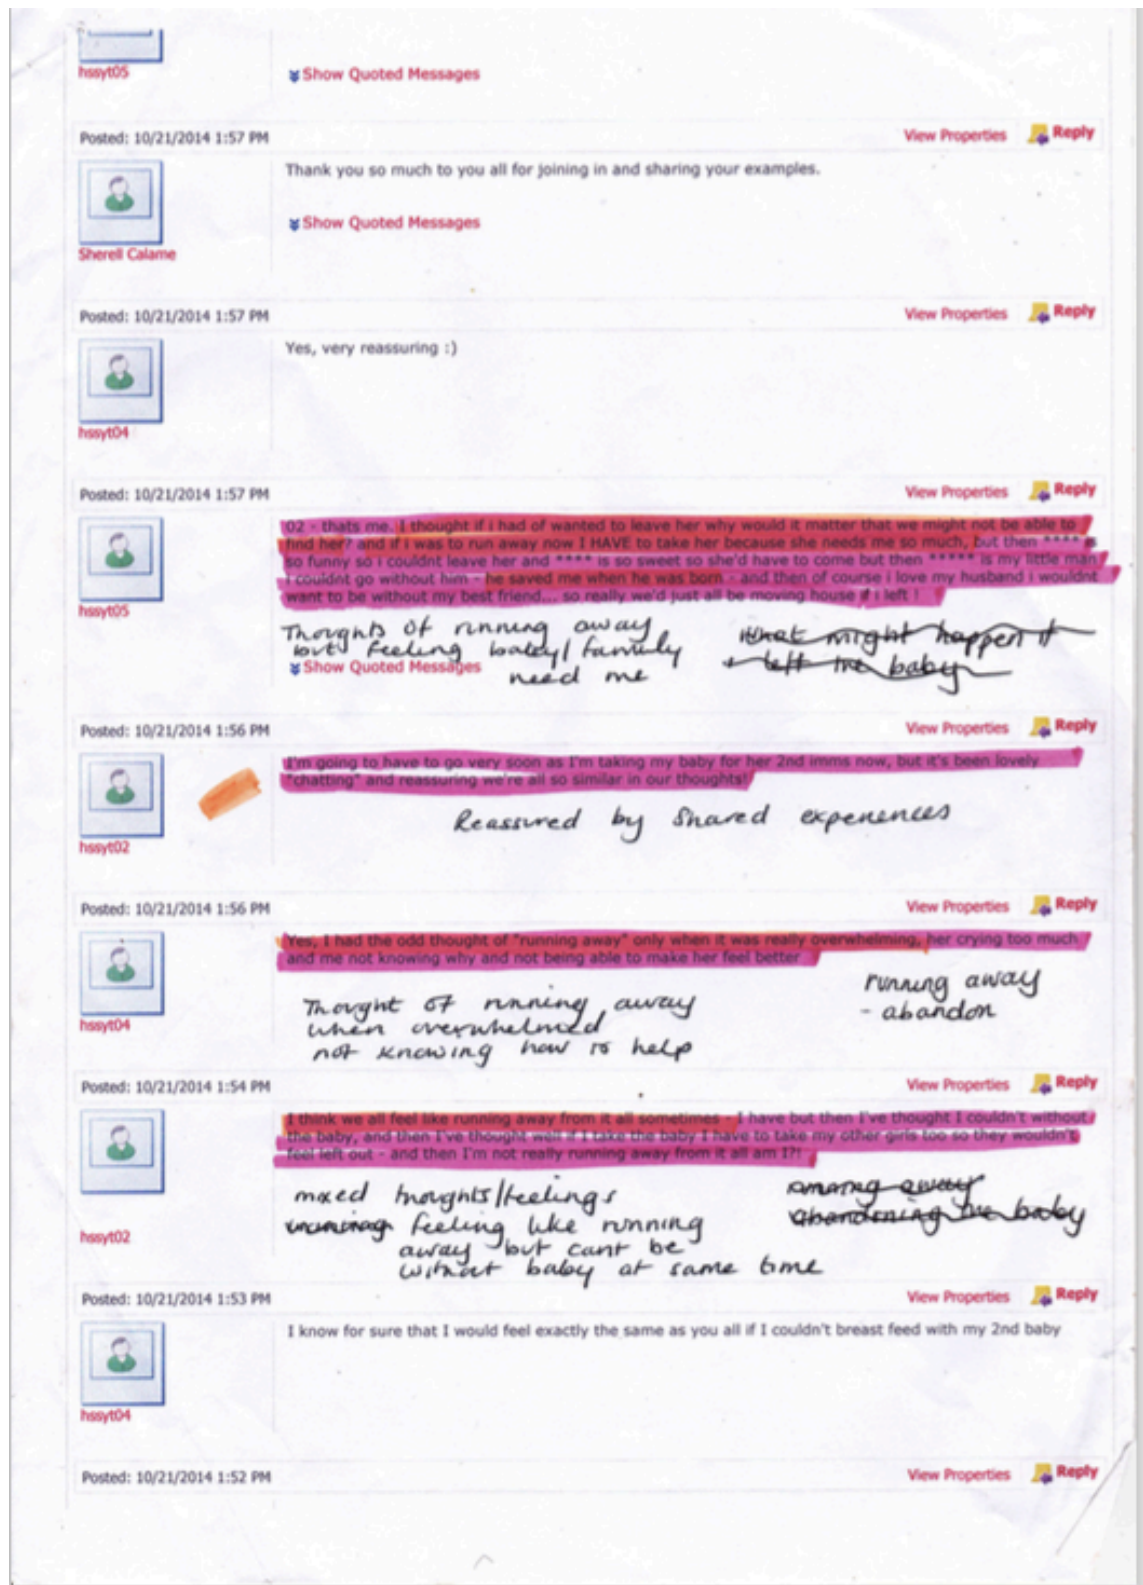 hssyt05
Show Quoted Messages
Posted: 10/21/2014 1:57 PM
View Properties
Reply
Thank you so much to you all for joining in and sharing your examples.
Show Quoted Messages
Sherell Calame
Posted: 10/21/2014 1:57 PM
View Properties
Reply
Yes, very reassuring :)
hssyt04
Posted: 10/21/2014 1:57 PM
View Properties
Reply
02 - thats me. I thought if i had of wanted to leave her why would it matter that we might not be able to
find her? and if i was to run away now I HAVE to take her because she needs me so much, but then **** is
so funny so i couldnt leave her and **** is so sweet so she'd have to come but then ***** is my little man
i couldnt go without him - he saved me when he was born - and then of course i love my husband i wouldnt
want to be without my best friend... so really we'd just all be moving house if i left !
hssyt05
Thoughts of running away
but feeling baby/ family
need me
what might happen if
I left the baby
Show Quoted Messages
Posted: 10/21/2014 1:56 PM
View Properties
Reply
I'm going to have to go very soon as I'm taking my baby for her 2nd imms now, but it's been lovely
"chatting" and reassuring we're all so similar in our thoughts!
Reassured by shared experiences
hssyt02
Posted: 10/21/2014 1:56 PM
View Properties
Reply
Yes, I had the odd thought of "running away" only when it was really overwhelming, her crying too much
and me not knowing why and not being able to make her feel better
hssyt04
Thought of running away
when overwhelmed
not knowing how to help
running away
- abandon
Posted: 10/21/2014 1:54 PM
View Properties
Reply
I think we all feel like running away from it all sometimes - I have but then I've thought I couldn't without
the baby, and then I've thought well if I take the baby I have to take my other girls too so they wouldn't
feel left out - and then I'm not really running away from it all am I?!
mixed thoughts/feelings
feeling like running
away but cant be
without baby at same time
running away
abandoning the baby
hssyt02
Posted: 10/21/2014 1:53 PM
View Properties
Reply
I know for sure that I would feel exactly the same as you all if I couldn't breast feed with my 2nd baby
hssyt04
Posted: 10/21/2014 1:52 PM
View Properties
Reply